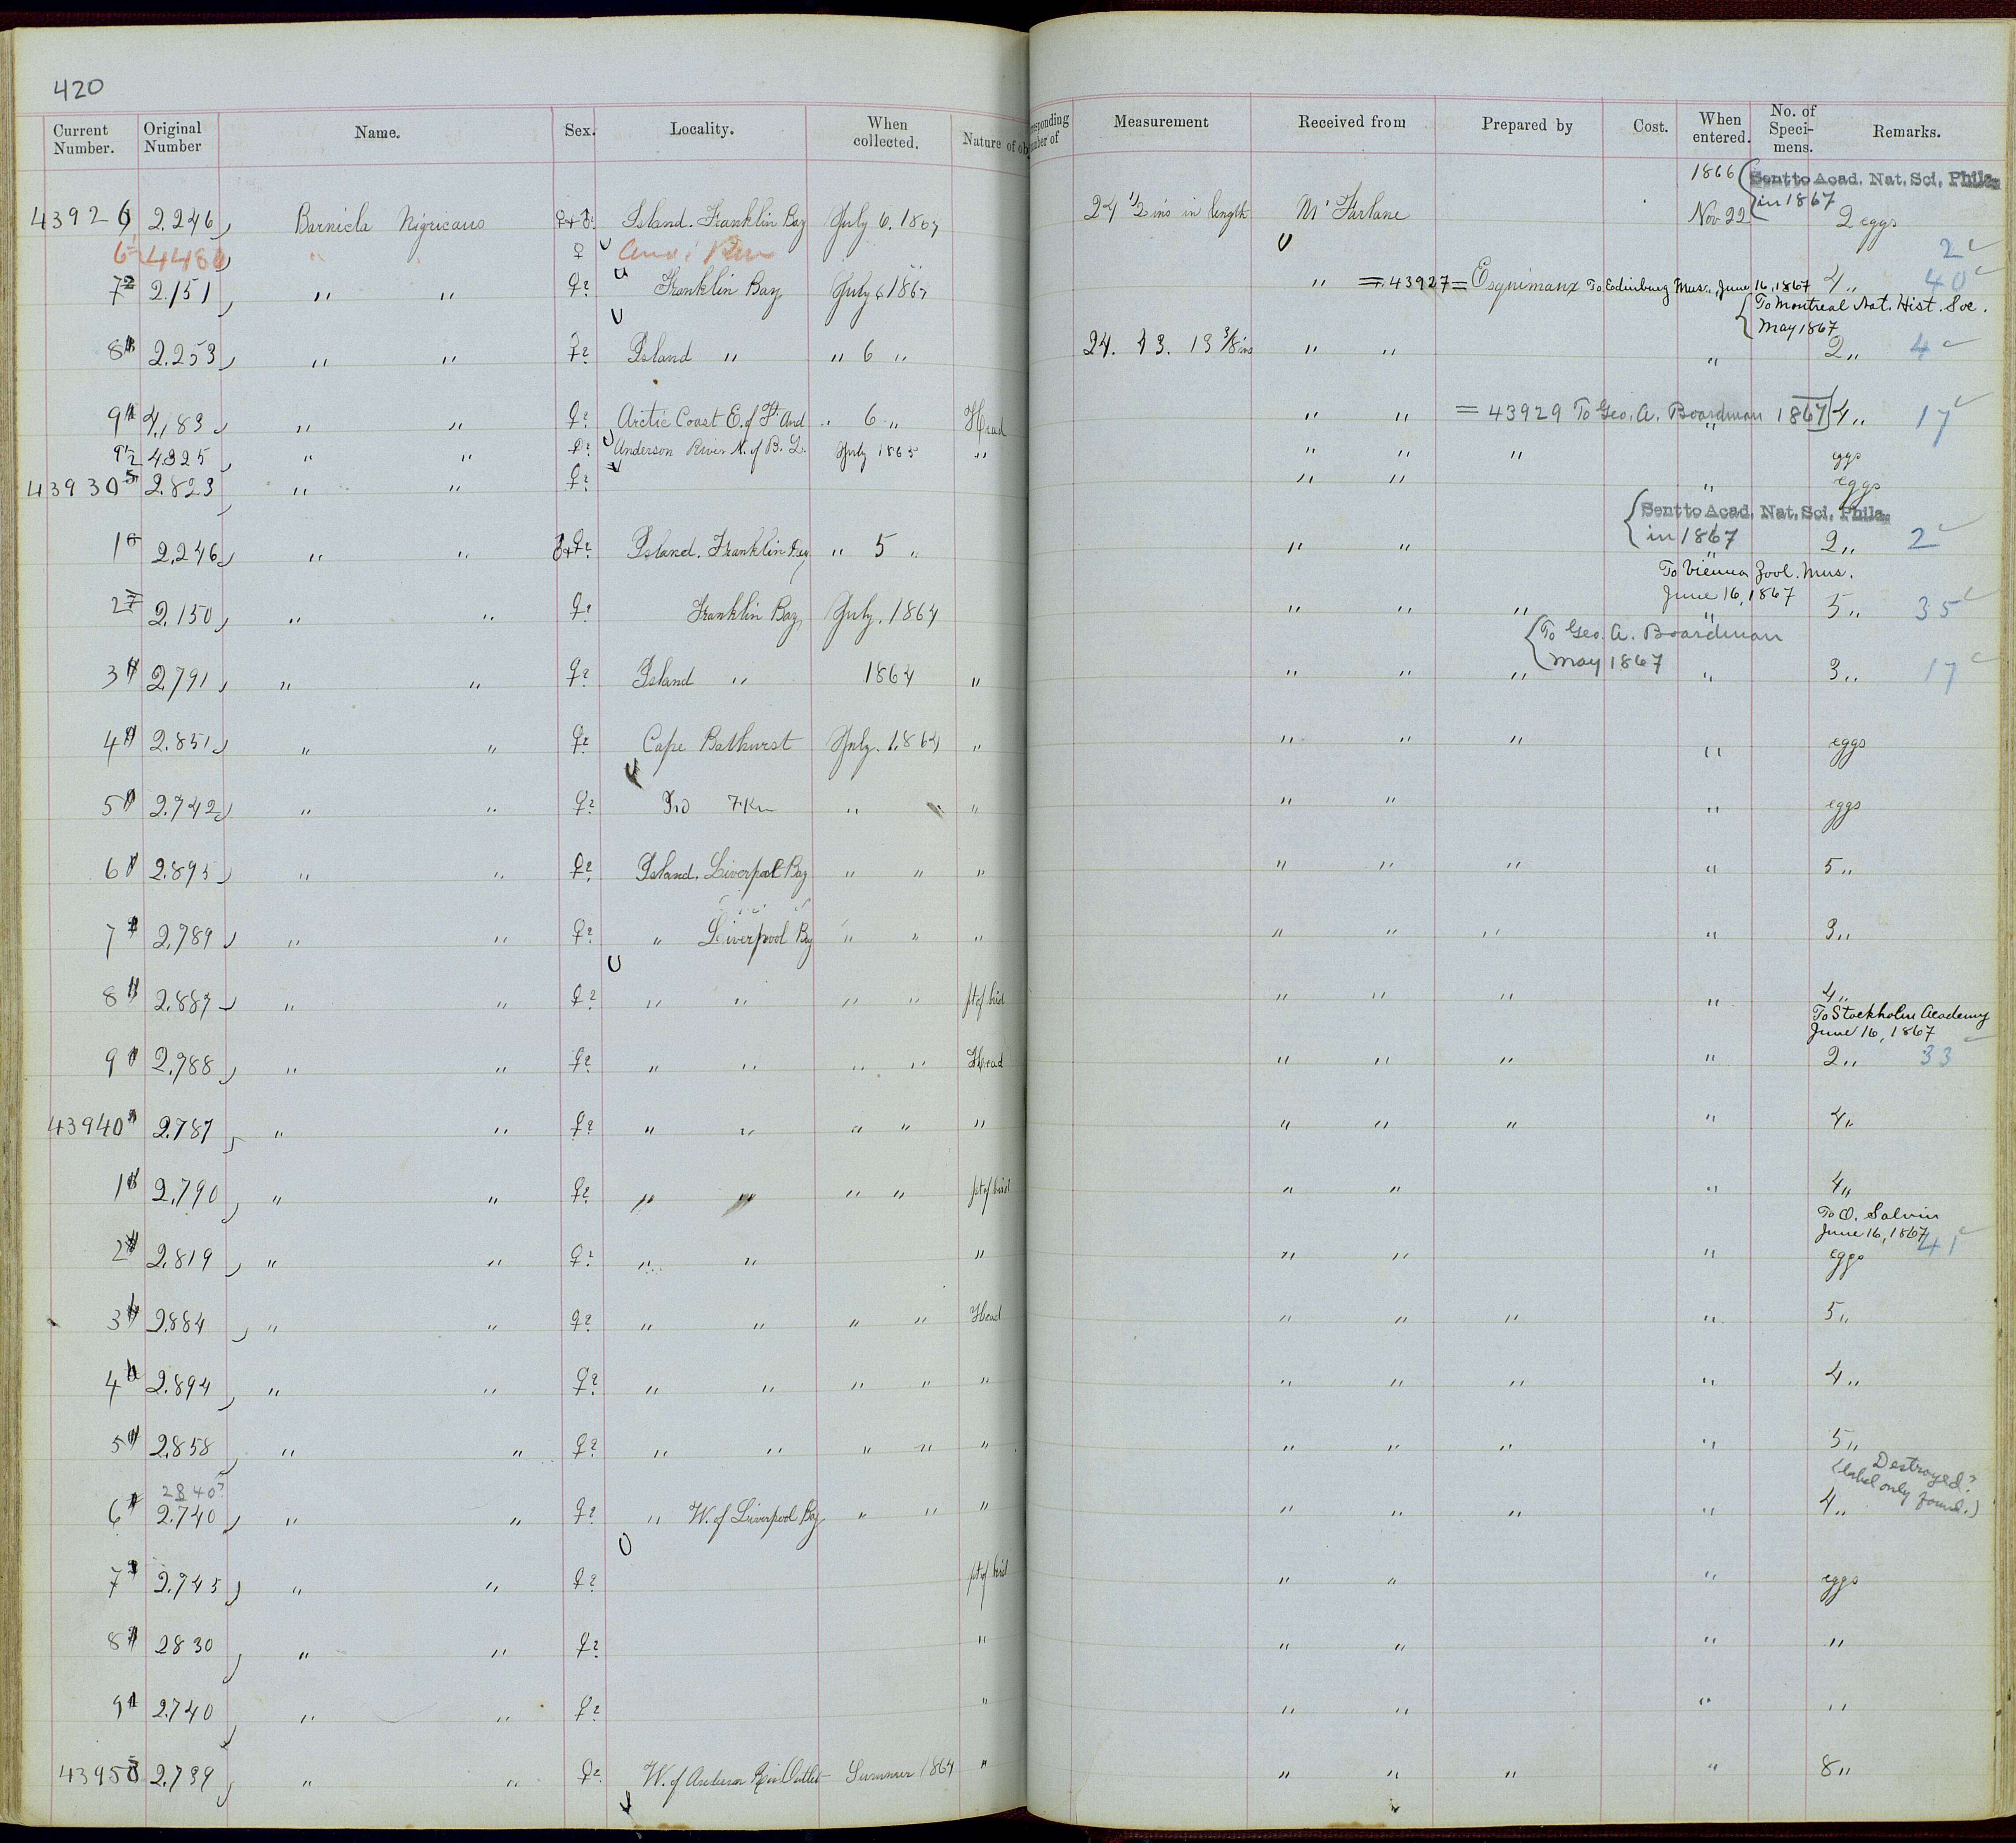 420
Current Number. Original Number Name. Sex. Locality. When collected. Nature of ob
responding mber of Measurement Received from Prepared by Cost. When entered. No. of Speci- mens. Remarks.
1866 Sent to Acad. Nat. Sci. Phila. in 1867
43926 2.246 Barnicla Nigricans ♀+♂ Island. Franklin Bay July 6. 1864 24 1/2 ins in length McFarlane Nov 22 2 eggs 2
4481 " " ♀
7 2.151 " " ♀? Franklin Bay July 6 1864 " = 43927 = Esquimaux To Edinburg Mus., June 16, 1867 4 " 40
To Montreal Nat. Hist. Soc. May 1867
8 2.253 " " ♀? Island " " 6 " 24. 43. 13 3/8 ins " " " 2 " 4
9 4.183 " " ♀? Arctic Coast E. of Ft And " 6 " Head " " = 43929 To Geo. A. Boardman 1867 " 4 " 17
9 1/2 4325 " " ♀? Anderson River N. of B. L. July 1865 " " " " eggs
43930 2.823 " " ♀? " " " eggs
Sent to Acad. Nat. Sci. Phila. in 1867
1 2.246 " " ♂+♀? Island. Franklin Bay " 5 " " " " 2 " 2
To Vienna Zool. Mus. June 16, 1867
2 2.150 " " ♀? Franklin Bay July. 1864 " " " " 5 " 35
To Geo. A. Boardman May 1867
3 2791 " " ♀? Island " 1864 " " " " " 3 " 17
4 2.851 " " ♀? Cape Bathurst July. 1864 " " " " " eggs
5 2.742 " " ♀? " " " " " " eggs
6 2.895 " " ♀? Island. Liverpool Bay " " " " " " " 5 "
7 2.789 " " ♀? " Liverpool Bay " " " " " " " 3 "
8 2.887 " " ♀? " " " " pt of bird " " " " 4 "
To Stockholm Academy June 16, 1867
9 2.788 " " ♀? " " " " Head " " " " 2 " 33
43940 2.787 " " ♀? " " " " " " " " " 4 "
1 2.790 " " ♀? " " " " pt of bird " " " 4 "
To O. Salvin June 16, 1867
2 2.819 " " ♀? " " " " " " eggs 41
3 2884 " " ♀? " " " " Head " " " " 5 "
4 2.894 " " ♀? " " " " " " " " " 4 "
5 2.858 " " ♀? " " " " " " " " " 5 "
2840? Destroyed? (label only found.)
6 2.740 " " ♀? " W. of Liverpool Bay " " " " " " " 4 "
7 2.745 " " ♀? pt of bird " " " eggs
8 2830 " " ♀? " " " " "
9 2.740 " " ♀? " " " " "
43950 2.739 " " ♀? W. of Anderson Riv. Outlet Summer 1864 " " " " " 8 "